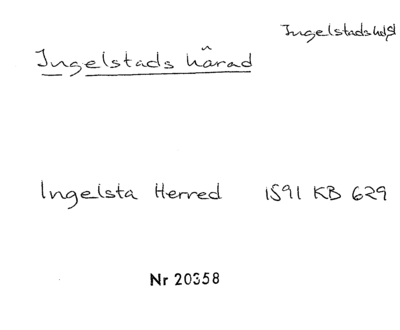 Ingelstads hd
Ingelstads härad
Ingelsta Herred 1591 KB 629
Nr 20358